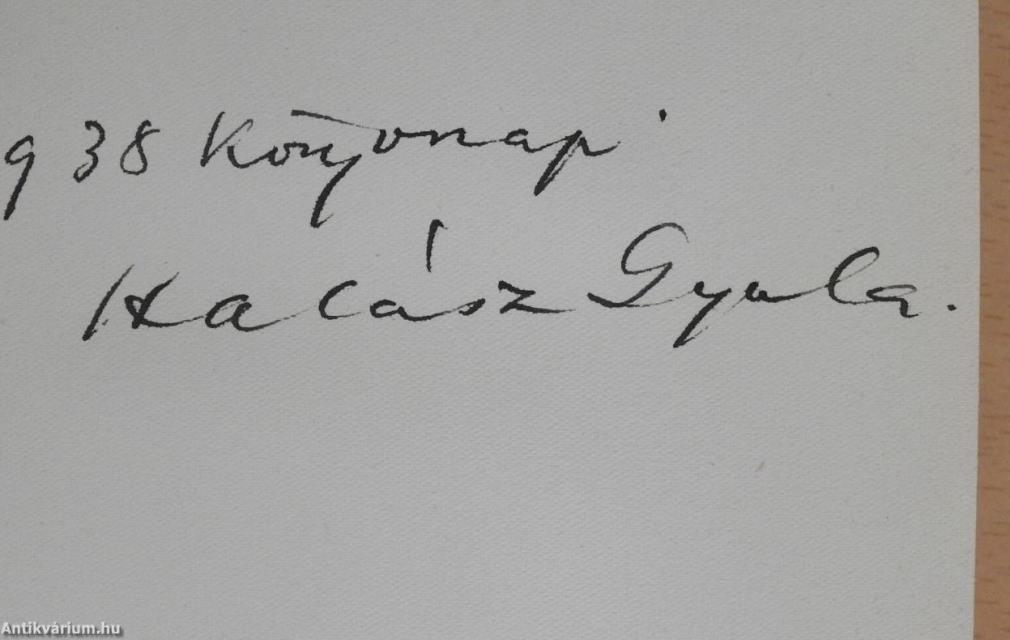 938 Könyvnapi
Halász Gyula.
Antikvárium.hu